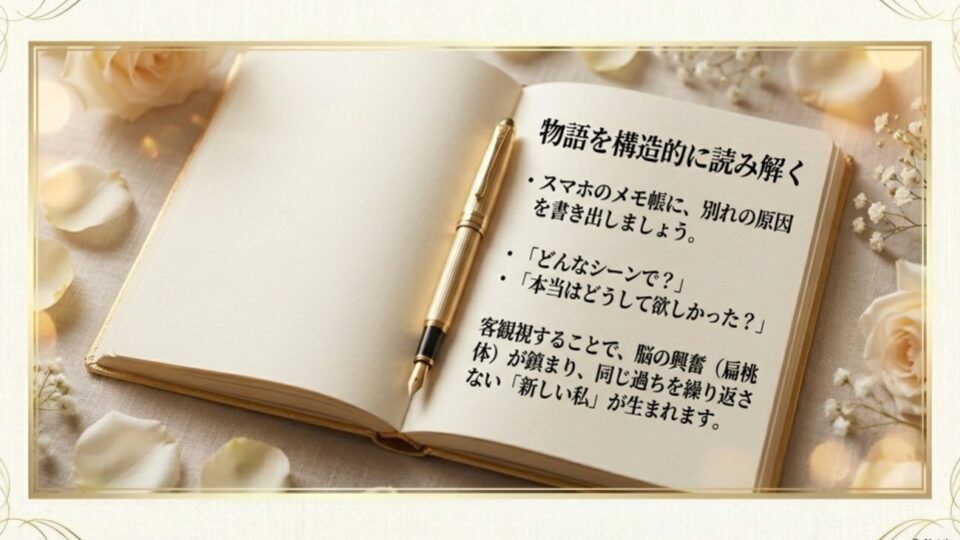 物語を構造的に読み解く
・スマホのメモ帳に、別れの原因
を書き出しましょう。
・「どんなシーンで？」
・「本当はどうして欲しかった？」
客観視することで、脳の興奮（扁桃
体）が鎮まり、同じ過ちを繰り返さ
ない「新しい私」が生まれます。